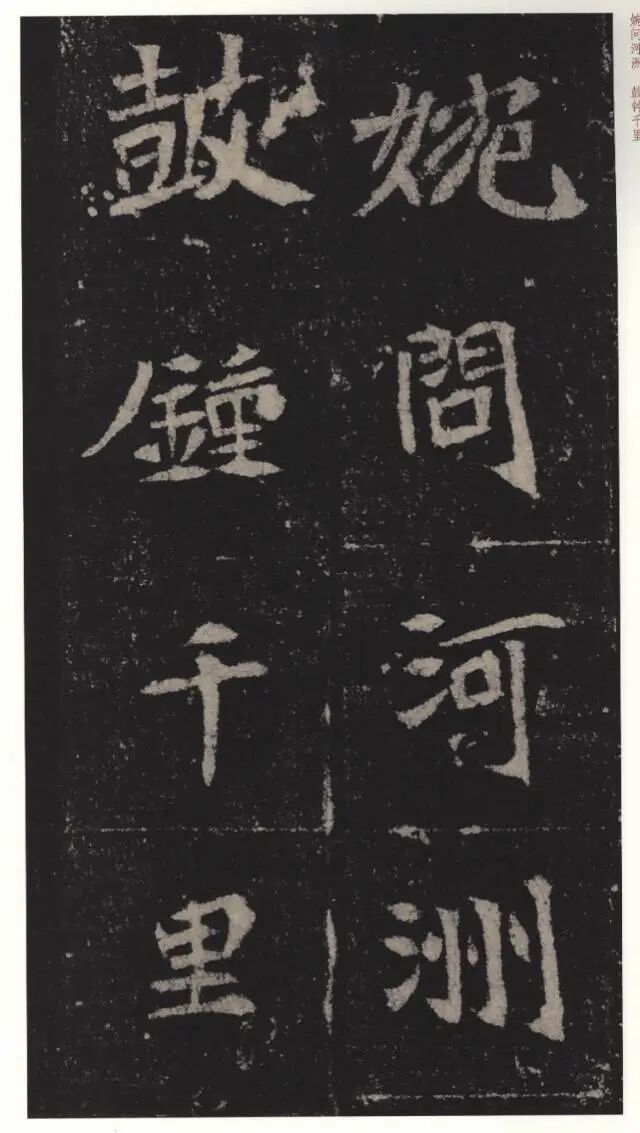 婉問河洲
鼓鍾千里
婉问河洲 鼓钟千里